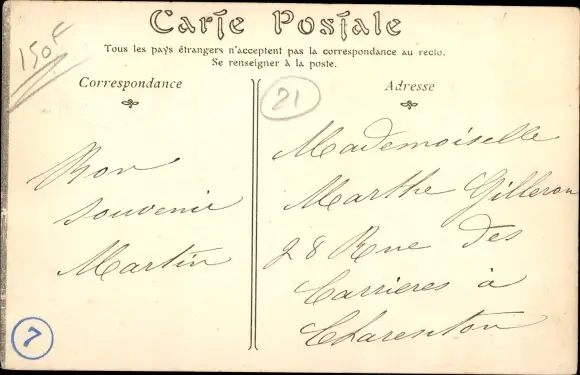 Carte Postale
Tous les pays étrangers n'acceptent pas la correspondance au recto.
Se renseigner à la poste.
150F
Correspondance
21
Adresse
Bon
souvenir
Martin
Mademoiselle
Marthe Gilleron
28 Rue des
Carrieres à
Charenton
7